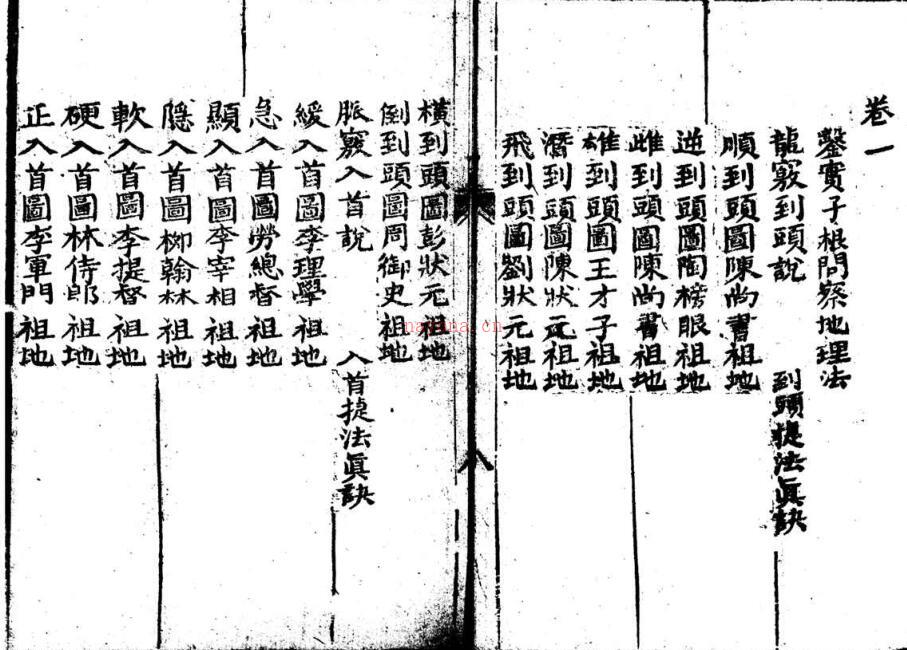 卷一
鑿實子根問察地理法
龍竅到頭説 到頭捷法眞訣
順到頭圖陳尚書祖地
逆到頭圖陶榜眼祖地
雌到頭圖陳尚書祖地
雄到頭圖王才子祖地
潛到頭圖陳狀元祖地
飛到頭圖劉狀元祖地
八
橫到頭圖彭狀元祖地
倒到頭圖周御史祖地
脈竅入首説 入首捷法眞訣
緩入首圖李理學祖地
急入首圖勞總督祖地
顯入首圖李宰相祖地
隱入首圖柳翰林祖地
軟入首圖李提督祖地
硬入首圖林侍郎祖地
正入首圖李軍門祖地
nayona.cn